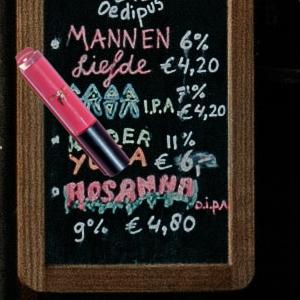 Oedipus
MANNEN 6%
Liefde € 4,20
I.P.A € 4,20
11%
€ 6,-
HOSANNA D.I.P.A
9% € 4,80